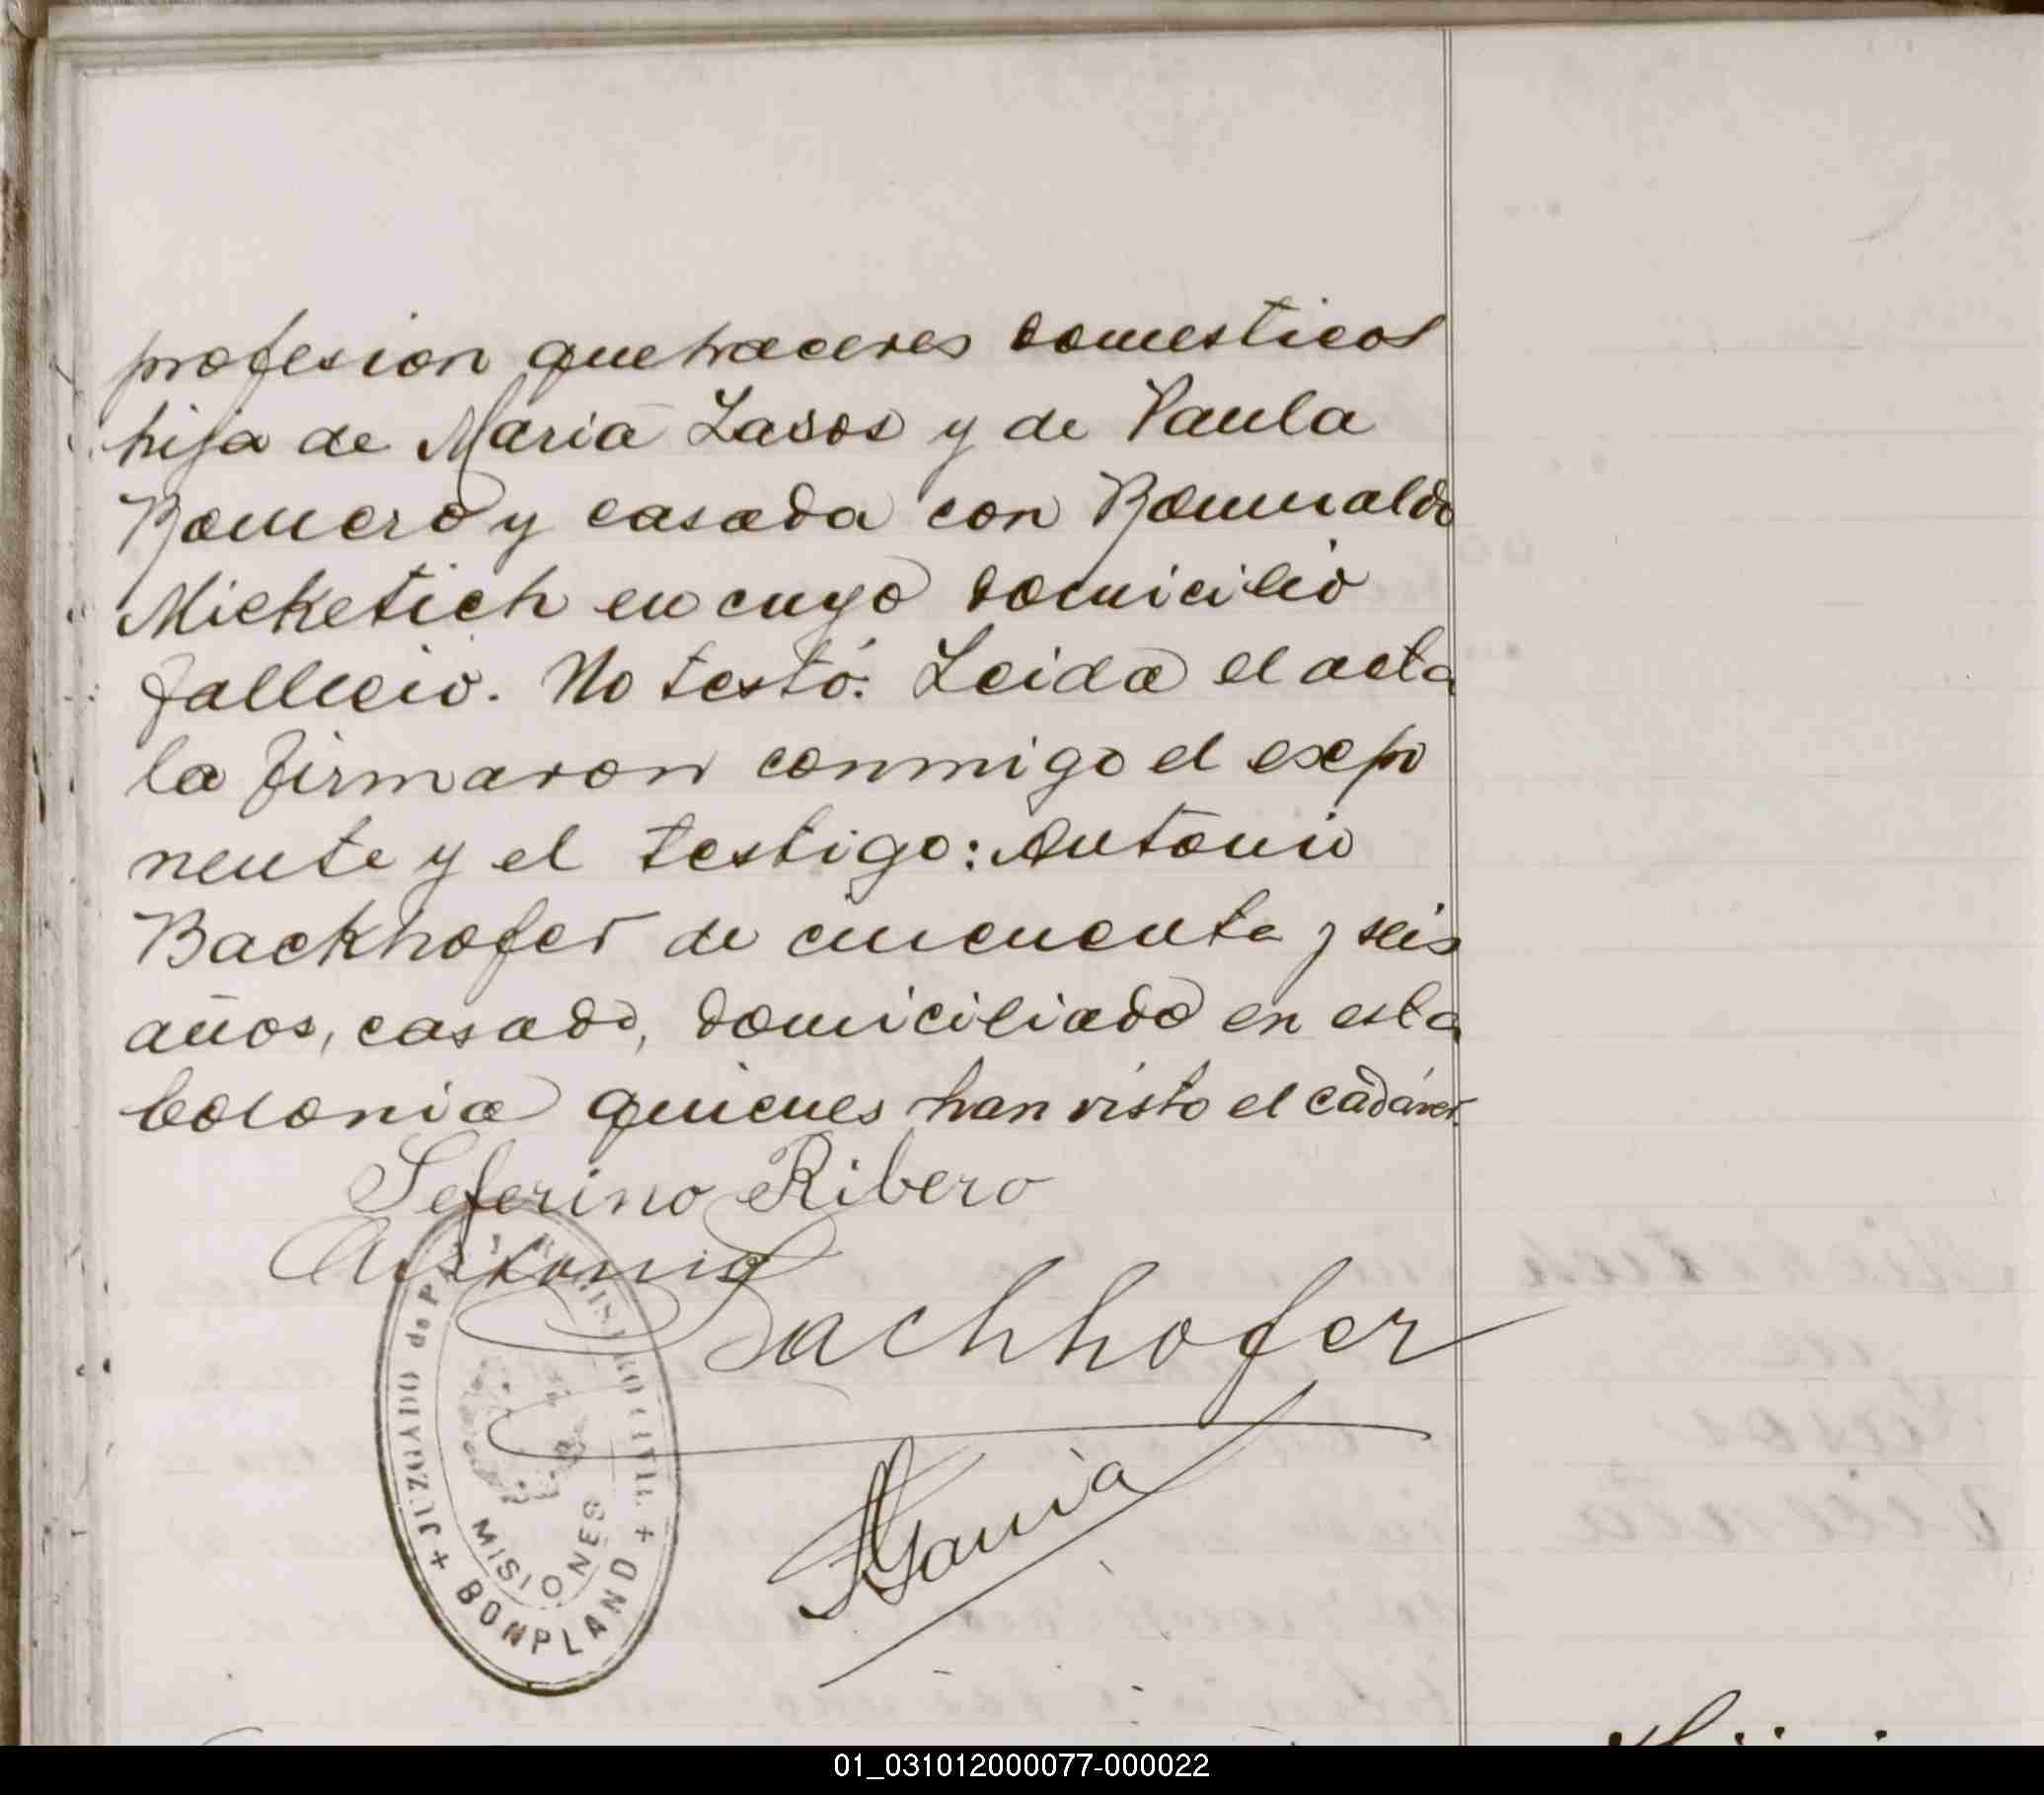 profesion quehaceres domesticos
hija de Maria Lasos y de Paula
Romero y casada con Romualdo
Micketich en cuyo domicilio
fallecio. No testó: Leida el acta
la firmaron conmigo el expo
nente y el testigo: Antonio
Backhofer de cincuenta y seis
años, casado, domiciliado en esta
Colonia quienes han visto el cadáver.
Seferino Ribero
Antonio
Bachhofer
JUZGADO de P Y REGISTRO CIVIL
MISIONES
BONPLAND
01_031012000077-000022